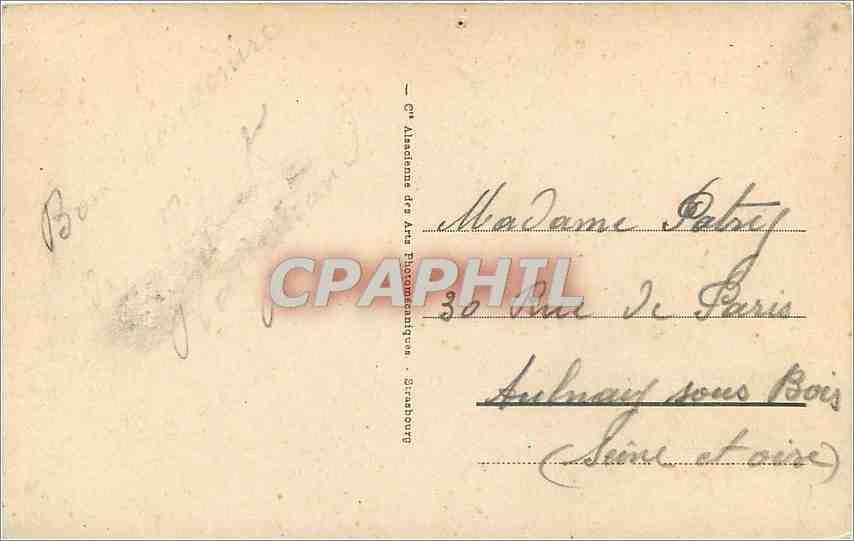 Bon
— Cie Alsacienne des Arts Photomécaniques - Strasbourg
CPAPHIL
Madame Patry
30 Rue de Paris
Aulnay sous Bois
(Seine et oise)